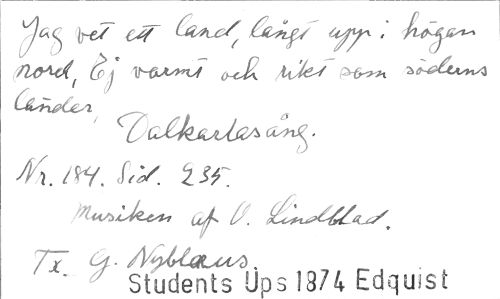 Jag vet ett land, långt upp i högan
nord, Ej varmt och rikt som söderns
länder,
Dalkarlasång.
Nr. 184. Sid. 235.
Musiken af O. Lindblad.
Tx. G. Nyblæus.
Students Ups 1874 Edquist